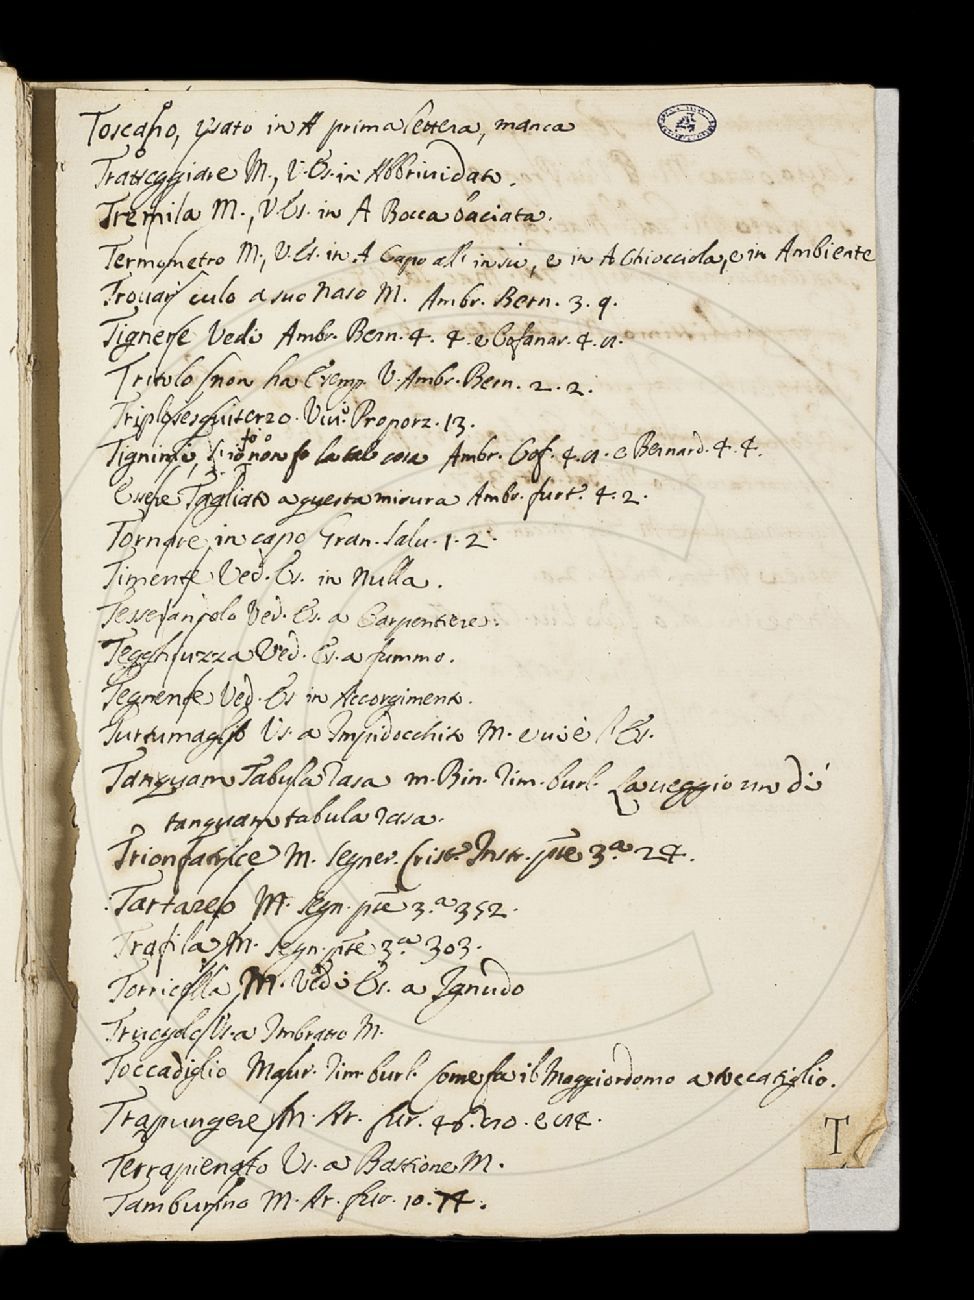 Toscano, Usato in A prima lettera, manca
Tratteggiare M., V. Es. in Abbrividato.
Tremila M., V. Es. in A Bocca baciata.
Termometro M., V. Es. in A Capo all' in sù, e in A Chiocciola, e in Ambiente
Trovar culo a suo Naso M. Ambr. Bern. 3. 9.
Tignere Vedi Ambr. Bern. 4. 4. e Cofanar. 4. 
Tritolo non ha Esemp. V. Ambr. Bern. 2. 2.
Triplosesquiterzo. Viv. Proporz. 13.
Tignimi, non fo la tale cosa Ambr. Cof. 4. e Bernard. 4. 4.
Essere Tagliato a questa misura Ambr. furt. 4. 2.
Tornare in capo Gran. Salv. 1. 2.
Timente Ved. Es. in Nulla.
Ved. Es. a Carpentiere.
Tegghiuzza Ved. Es. a fummo.
Tegnente Ved. Es in Accorgimento.
Turtumaglio Vs. a Impidocchito M. e vi è l'Es.
Tanquam Tabula rasa m. Bin. rim. burl. La veggio un dì
tanquam tabula rasa.
Trionfatrice M. Segner. Crist. Instr. pte 3.a 24.
Tartareo M. Segn. pte 3.a 352.
Trafila M. Segn. pte 3.a 303.
Torricella M. Vedi Es. a Ignudo
Vs. a Imbratto M.
Toccadiglio Maur. rim. burl. Come fa il Maggiordomo a toccatiglio.
Trapungere M. Ar. fur. 46.
Terrapienato Vs. a Bastione M.
Tamburino M. Ar. fur. 10. 74.
T